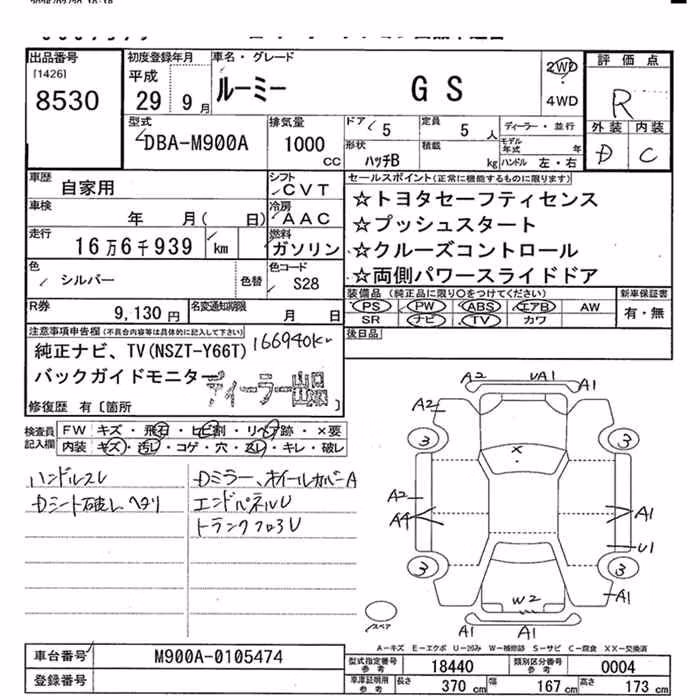 出品番号
[1426]
8530
初度登録年月
平成
29 9月
車名・グレード
ルーミー GS
2WD
4WD
評価点
R
外装 内装
D C
型式
DBA-M900A
排気量
1000 CC
ドア 5
定員 5 人
ディーラー・並行
形状 ハッチB
積載 kg
モデル年式 年
ハンドル 左・右
車歴 自家用
シフト CVT
車検 年 月( 日)
冷房 AAC
走行 16万6千939 km
燃料 ガソリン
色 シルバー 色替
色コード S28
R券 9,130円
名変通知期限 月 日
セールスポイント(正常に機能するものに限ります)
☆トヨタセーフティセンス
☆プッシュスタート
☆クルーズコントロール
☆両側パワースライドドア
装備品(純正品に限り○をつけてください)
PS PW ABS エアB AW
SR ナビ TV カワ
新車保証書
有・無
後日品
注意事項申告欄(不具合内容等は具体的に記入して下さい)
純正ナビ、TV(NSZT-Y66T) 166940K
バックガイドモニター
ディーラー出品
修復歴 有〔箇所 〕
検査員記入欄
FW キズ・飛石・ヒビ割・リペア跡・×要
内装 キズ・汚レ・コゲ・穴・凹レ・キレ・破レ
ハンドルスレ
Dシート破レ、ヘタリ
Dミラー、ホイールカバーA
エンドパネルU
トランクフロアU
A2 UA1 A1
A2
3 3
×
A2
A4 A1
U1
3 3
W2 A1
A1 A1
スペア
A-キズ E-エクボ U-凹み W-補修跡 S-サビ C-腐食 XX-交換済
車台番号 M900A-0105474
登録番号
型式指定番号 参考 18440
類別区分番号 参考 0004
車庫証明用 参考 長さ 370 cm 幅 167 cm 高さ 173 cm